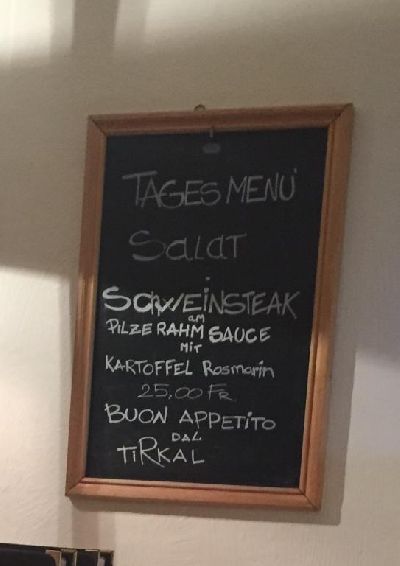 TAGES MENU
SALAT
SCHWEINSTEAK
am
PILZE RAHM SAUCE
MIT
KARTOFFEL Rosmarin
25.00 FR.
BUON APPETITO
DAL
TIRKAL